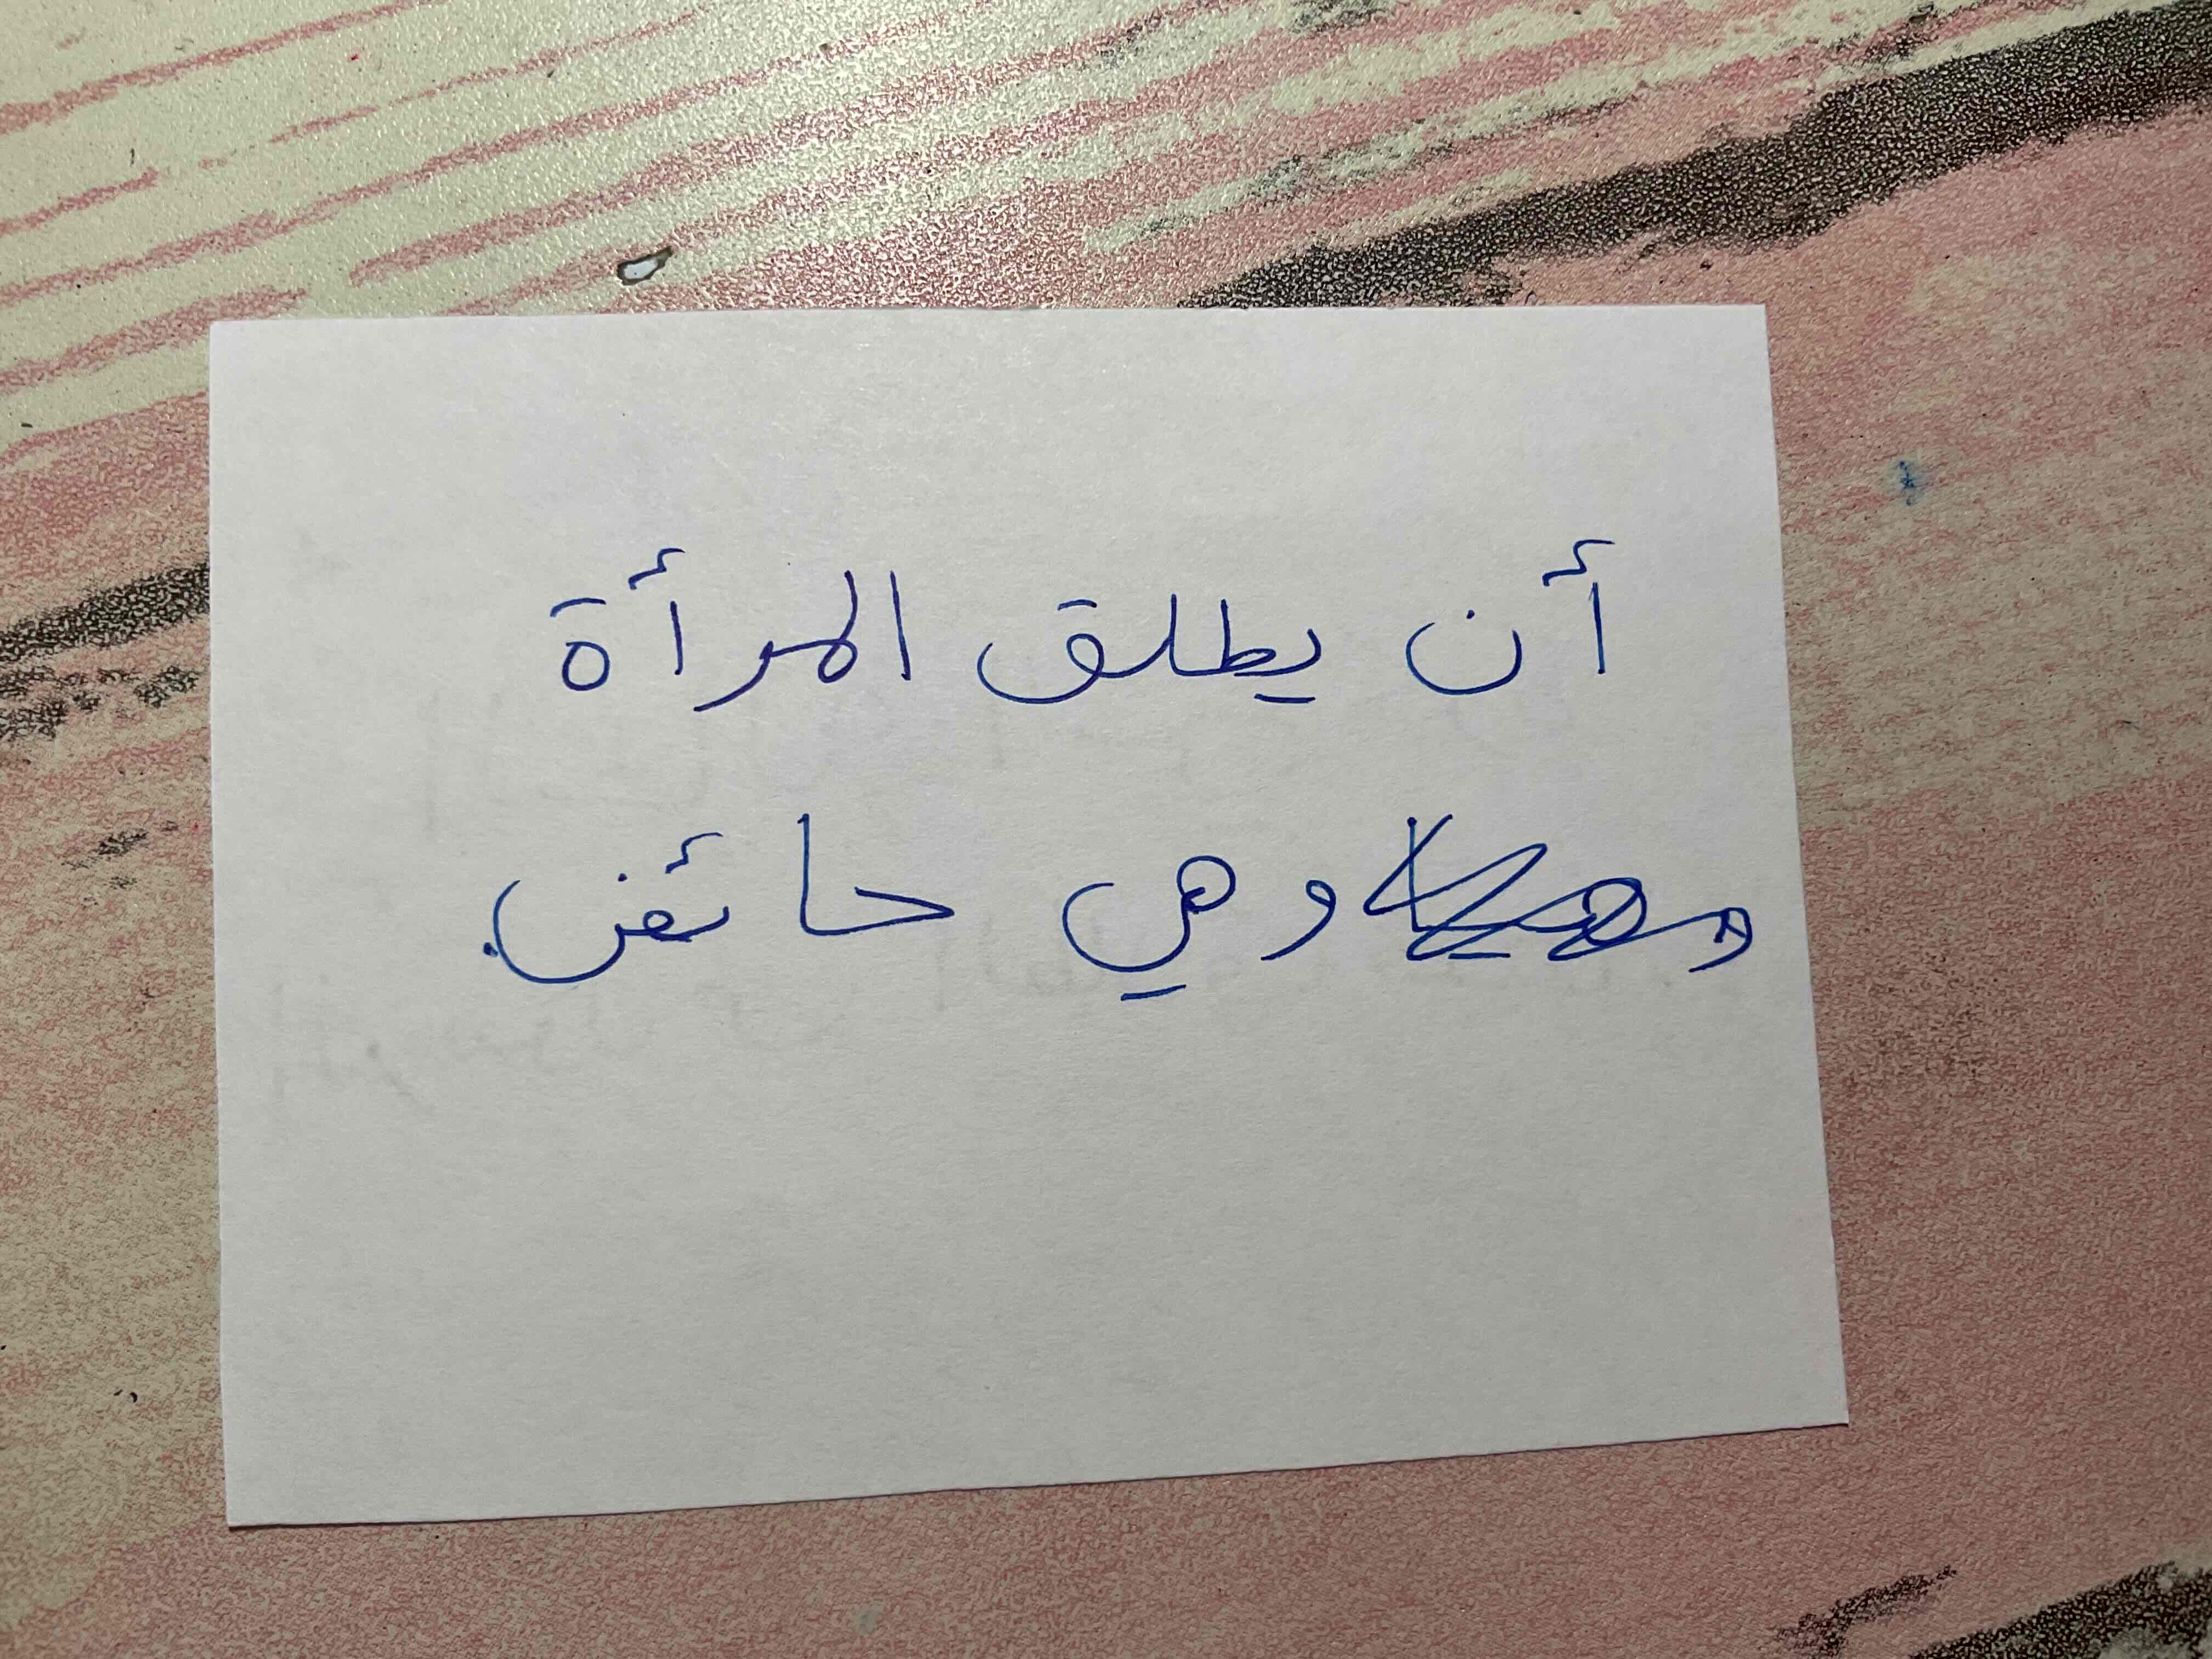 أن يطلق المرأة
وهي حائض.